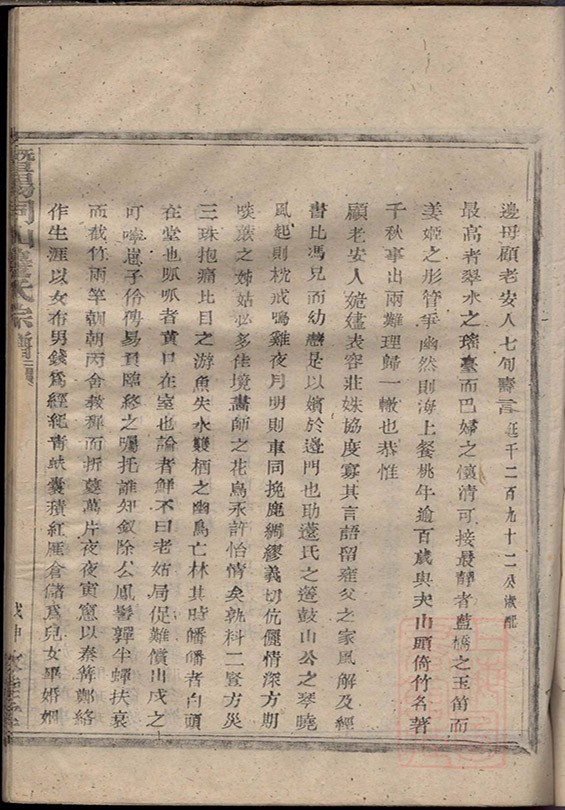 邊母顧老安人七旬壽言 廷千二百九十二公淑配
最高者翠水之瑤臺而巴婦之懷清可接最靜者藍橋之玉笛而
姜姬之彤管爭幽然則海上餐桃年逾百歲與夫山頭倚竹名著
千秋事出兩難理歸一轍也恭惟
顧老安人婉嫿表容莊姝協度寡其言語留雍父之家風解及經
書比馮兄而幼慧是以嬪於邊門也助蘧氏之籩鼓山公之琴曉
風起則枕戒鳴雞夜月明則車同挽鹿綢繆義切伉儷情深方期
啖蔗之姊姑必多佳境畵師之花鳥永許怡情矣孰料二豎方災
三珠抱痛比目之游魚失水雙栖之幽鳥亡林其時皤皤者白頭
在堂也呱呱者黃口在室也論者鮮不曰老姤局促難償出戍之
叮嚀嵬子伶俜易負臨終之囑托誰知釵除公鳳鬢嚲半蟬扶衰
而截竹兩竿朝朝丙舍教稚而折薎萬片夜夜寅窻以泰筭鄰絡
作生涯以女布男錢爲經紀靑蚨囊積紅雁倉儲爲兒女畢婚姻
暨陽同山邊氏宗譜
戊申